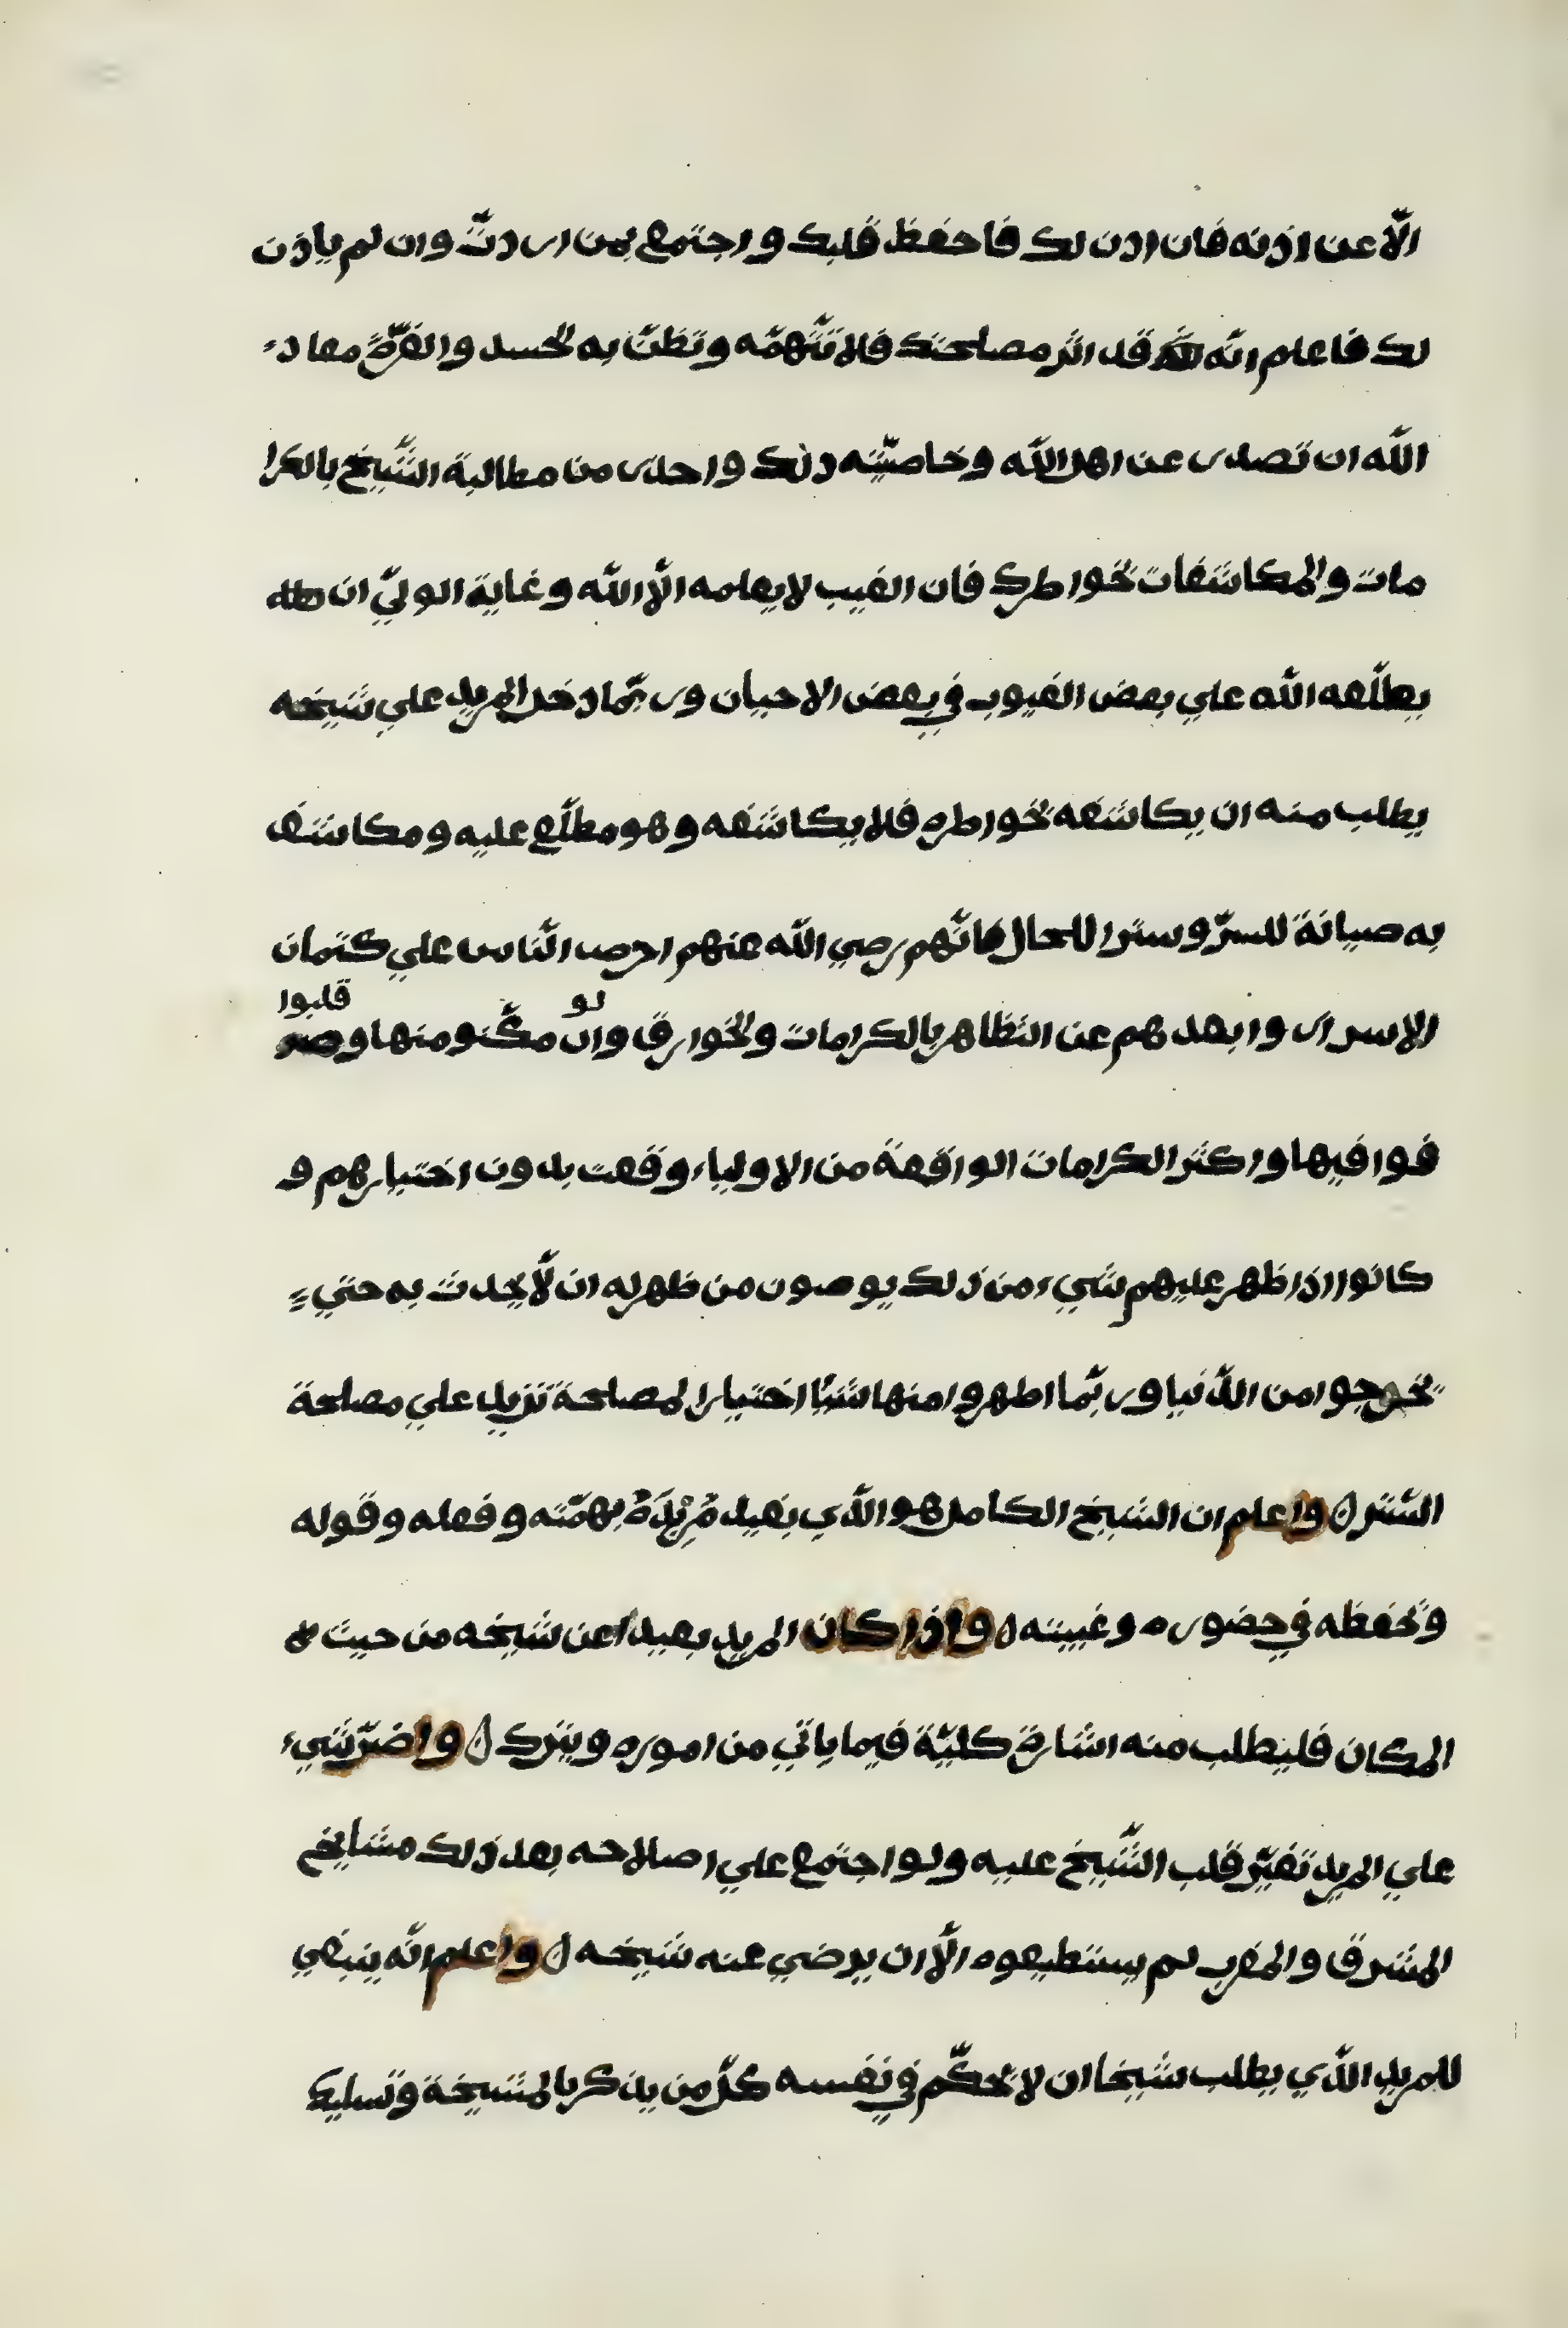 الّا عن اذنه فان اذن لك فاحفظ قلبك واجتمع بمن اردتّ وان لم ياذن
لك فاعلم انّه قد اثر مصلحتك فلا تتّهمّه وتظنّ به الحسد والغرّة معاذ
الله ان تصدر عن اهل الله وخاصّيّته ذلك واحذر من مطالبة الشّيخ بالكرا
مات والمكاشفات بخواطرك فان الغيب لا يعلمه الّا الله وغاية الوليّ ان
يطلّعه الله علي بعض الغيوب في بعض الاحيان وربّما دخل المريد علي شيخه
يطلب منه ان يكاشفه بخواطره فلا يكاشفه وهو مطلّع عليه ومكاشف
به صيانة للسرّ وسترا للحال فانّهم رضي الله عنهم احرص النّاس علي كتمان
الاسرار وابعدهم عن التظاهر بالكرامات والخوارق وان مكّنو منها وصر
لو قلبوا
فوا فيها واكثر الكرامات الواقعة من الاولياء وقعت بدون اختيارهم و
كانوا اذا ظهر عليهم شيء من ذلك يوصون من ظهر له ان لّا يحدث به حتي
يخرجوا من الدّنيا وربّما اظهروا منها شيئا اختيارا لمصلحة تزيد علي مصلحة
السّتر واعلم ان الشيخ الكامل هو الّذي يفيد مُرِيْدَهُ بهمّته وفعله وقوله
وتحفظه في حضوره وغيبته واذا كان المريد بعيدا عن شيخه من حيث
المكان فليطلب منه اشارة كليّة فيما ياتي من اموره ويترك واضرّ شيء
علي المريد تغيّر قلب الشّيخ عليه ولو اجتمع علي اصلاحه بعد ذلك مشايخ
المشرق والمغرب لم يستطيعوه الّا ان يرضي عنه شيخه واعلم انّه ينبغي
للمريد الّذي يطلب شيخا ان لا يحكّم في نفسه كلّ من يذكر بالمشيخة وتسليك